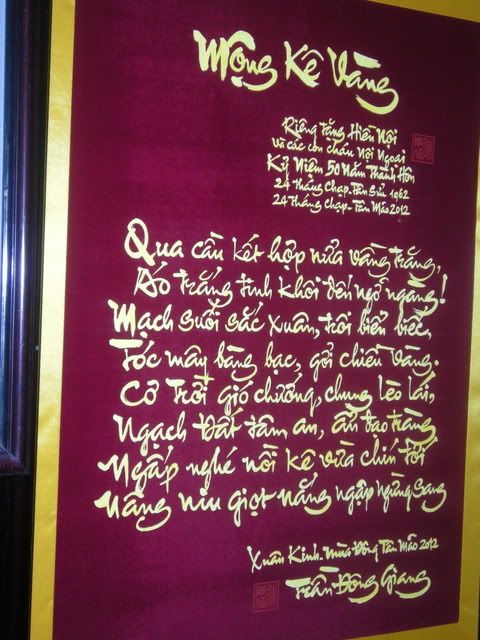 Mộng Kê Vàng
Riêng tặng Hiền Nội
Và các con cháu Nội Ngoại
Kỷ Niệm 50 Năm Thành Hôn
24 tháng Chạp - Tân Sửu 1962
24 tháng Chạp - Tân Mão 2012
Qua cầu kết hợp nửa vầng trăng,
Áo trắng tinh khôi đến ngỡ ngàng!
Mạch suối sắc xuân, trôi biển biếc,
Tóc mây bàng bạc, gợi chiều vàng.
Cơ Trời gió chướng, chung lèo lái,
Ngạch Đất tâm an, ẩn đạo tràng
Ngấp nghé nồi kê vừa chín tới
Nâng niu giọt nắng ngập ngừng sang
Xuân Kinh - Mùa Đông Tân Mão 2012
Trần Đông Giang